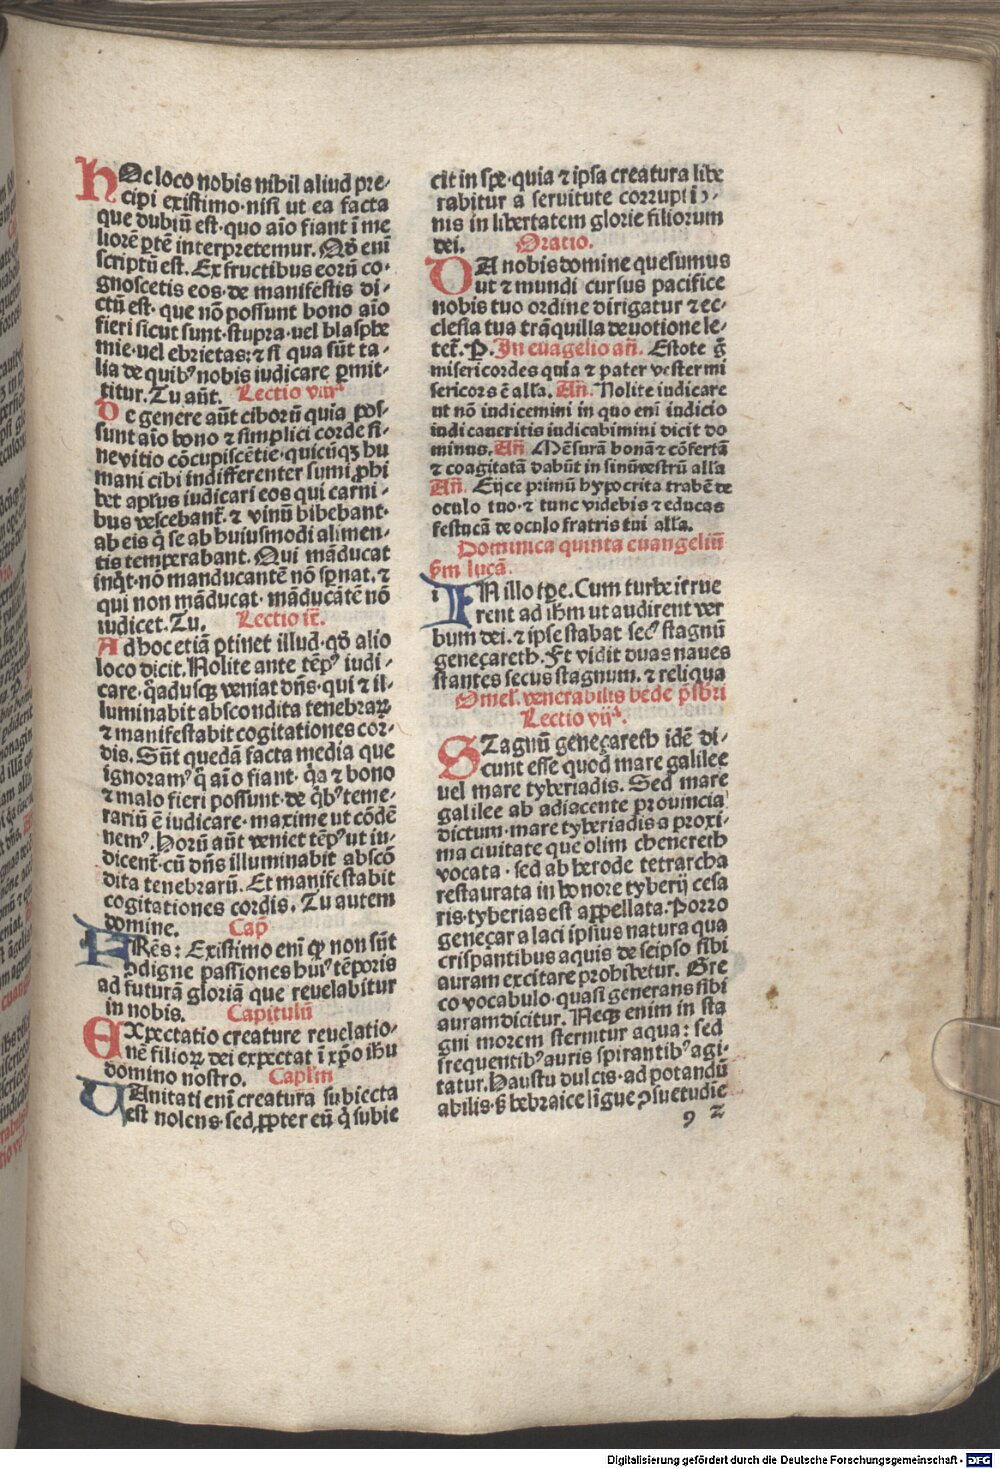 HOc loco nobis nihil aliud pre-
cipi existimo· nisi ut ea facta
que dubiū est· quo aīo fiant ī me
liorē ꝑtē interpretemur. Qd̄ enī
scriptū est. Ex fructibus eorū co-
gnoscetis eos· de manifestis di-
ctū est· que nō possunt bono aīo
fieri sicut sunt· stupra· vel blasphe
mie· vel ebrietas: ⁊ si qua sūt ta-
lia de quibꝰ nobis iudicare ꝑmit-
titur. Tu aūt. Lectio viijᵃ
De genere aūt ciborū quia pos-
sunt aīo bono ⁊ simplici corde si-
ne vitio cōcupiscētie· quicūqꝫ hu
mani cibi indifferenter sumi ꝓhi
bet apl̄us iudicari eos qui carni-
bus vescebant̄· ⁊ vinū bibebant·
ab eis q̄ se ab huiusmodi alimen-
tis temperabant. Qui māducat
inq̄t· nō manducantē nō sꝑnat. ⁊
qui non māducat· māducātē nō
iudicet. Tu. Lectio ix̄.
Ad hoc etiā ꝑtinet illud· qd̄ alio
loco dicit. Nolite ante tēpꝰ iudi-
care· q̄adusqꝫ veniat dn̄s· qui ⁊ il-
luminabit abscondita tenebraꝝ
⁊ manifestabit cogitationes cor-
dis. Sūt quedā facta media que
ignoramꝰ q̄ aīo fiant· q̄a ⁊ bono
⁊ malo fieri possunt· de q̄bꝰ teme-
rariū ē iudicare· maxime ut cōdē
nemꝰ. Horū aūt veniet tēpꝰ ut iu-
dicent̄· cū dn̄s illuminabit abscō
dita tenebrarū. Et manifestabit
cogitationes cordis. Tu autem
domine. Cap̄
FRēs: Existimo enī qꝫ non sūt
ꝯdigne passiones huiꝰ tēporis
ad futurā gloriā que revelabitur
in nobis. Capitulū
EXpectatio creature revelatio-
nē filioꝝ dei expectat ī xp̄o ih̄u
domino nostro. Capl̄m
VAnitati enī creatura subiecta
est nolens· sed ꝓpter eū q̄ subie
cit in spe· quia ⁊ ipsa creatura libe
rabitur a servitute corruptio-
nis in libertatem glorie filiorum
dei. Oratio.
DA nobis domine quesumus
ut ⁊ mundi cursus pacifice
nobis tuo ordine dirigatur ⁊ ec-
clesia tua trāquilla devotione le-
tet̄. P. In euāgelio an̄. Estote ḡ
misericordes quia ⁊ pater vester mi
sericors ē alla. An̄. Nolite iudicare
ut nō iudicemini in quo enī iudicio
iudicaveritis iudicabimini dicit do
minus. An̄ Mēsurā bonā ⁊ cōfertā
⁊ coagitatā dabūt in sinū vestrū alla
An̄. Eijce primū hypocrita trabē de
oculo tuo· ⁊ tunc videbis ⁊ educas
festucā de oculo fratris tui alla.
Dominica quinta euangeliū
s̄m lucā.
IN illo tꝑe. Cum turbe īrrue
rent ad ih̄m ut audirent ver
bum dei. ⁊ ipse stabat secꝰ stagnū
geneçareth. Et vidit duas naves
stantes secus stagnum. ⁊ reliqua
Omel. venerabilis bede p̄sbri
Lectio vijᵃ.
STagnū geneçareth idē di-
cunt esse quod mare galilee
vel mare tyberiadis. Sed mare
galilee ab adiacente provincia
dictum· mare tyberiadis a proxi-
ma civitate que olim chenereth
vocata· sed ab herode tetrarcha
restaurata in honore tyberij cesa
ris· tyberias est appellata. Porro
geneçar a laci ipsius natura qua
crispantibus aquis de seipso sibi
auram excitare prohibetur. Gre
co vocabulo· quasi generans sibi
auram dicitur. Neqꝫ enim in sta
gni morem sternitur aqua: sed
frequentibꝰ auris spirantibꝰ agi-
tatur. Haustu dulcis· ad potandū
abilis· s̄ hebraice līgue ꝯsuetudie
9 2
Digitalisierung gefördert durch die Deutsche Forschungsgemeinschaft - DFG